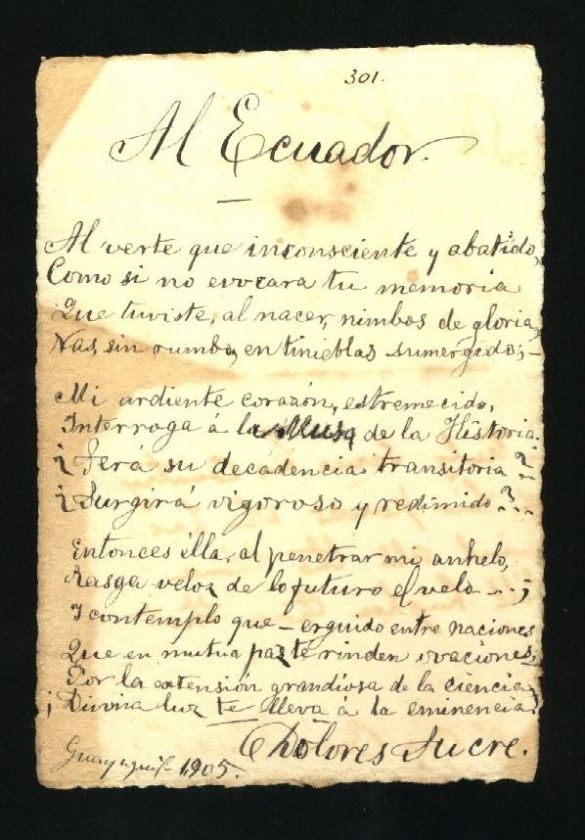 301.
Al Ecuador.
Al verte que inconsciente y abatido,
Como si no evocara tu memoria
Que tuviste, al nacer, nimbos de gloria,
Vas, sin rumbo, en tinieblas sumergido; –
Mi ardiente corazón, estremecido,
Interroga á la Musa de la Historia.
¿Será su decadencia transitoria?
¿Surgirá vigoroso y redimido?..
Entonces élla, al penetrar mi anhelo,
Rasga veloz de lo futuro el velo...;
I contemplo que – erguido entre naciones
Que en mutua paz te rinden ovaciones,
Por la extensión grandiosa de la ciencia,
¡Divina luz te lleva á la eminencia!
Dolores Sucre.
Guayaquil – 1905.